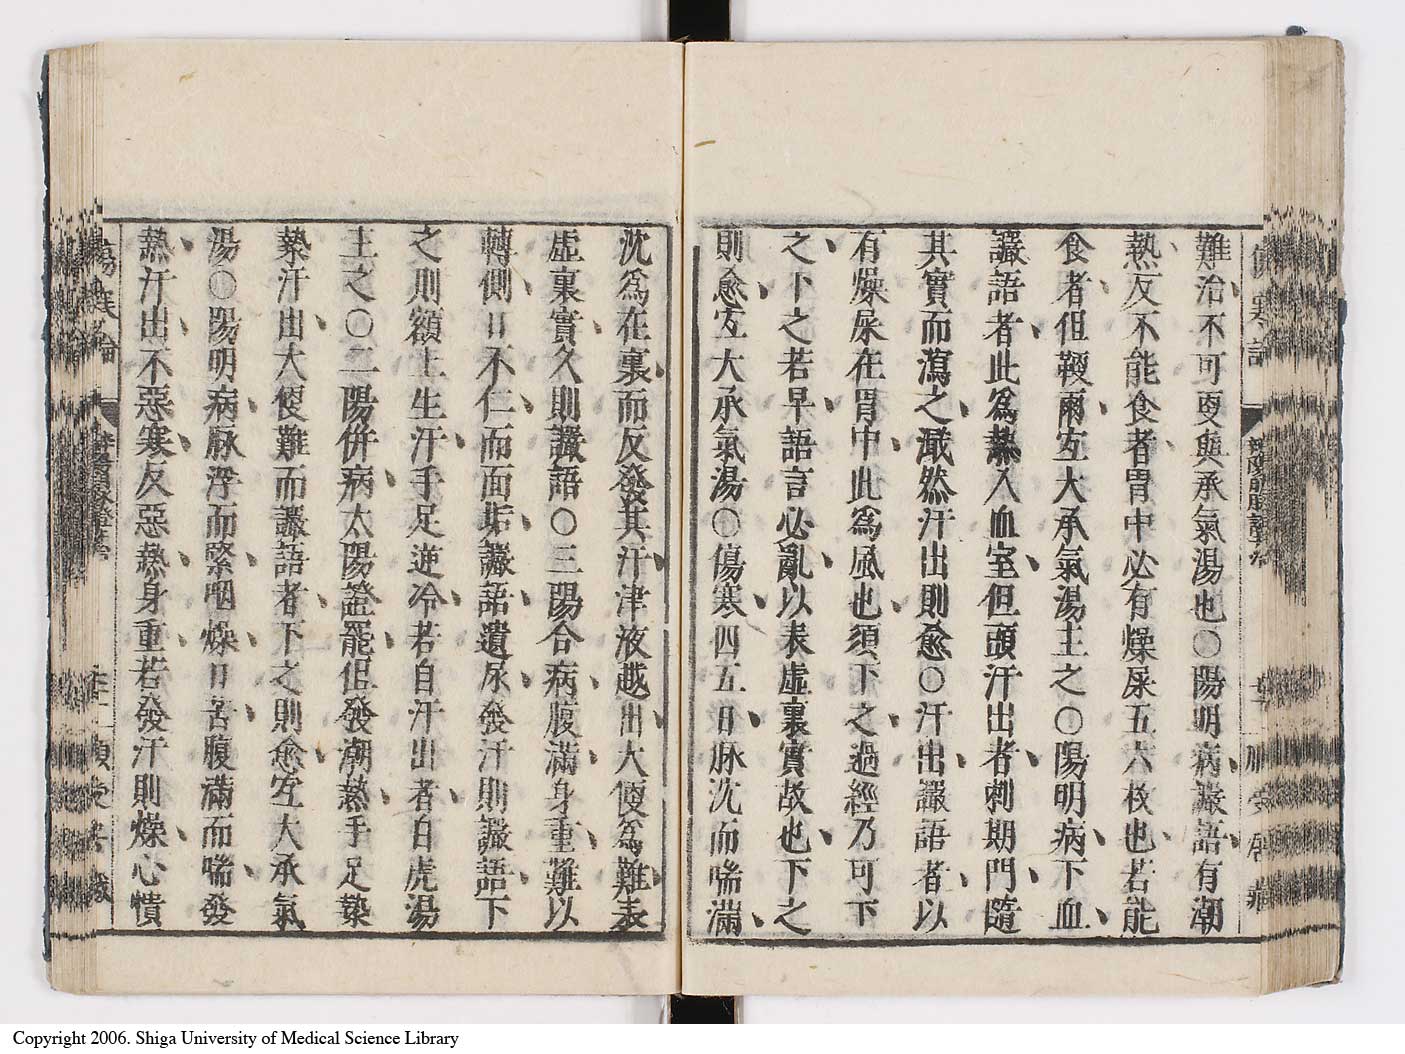 難治不可更與承氣湯也○陽明病讝語有潮
熱反不能食者胃中必有燥屎五六枚也若能
食者但鞕爾宜大承氣湯主之○陽明病下血
讝語者此爲熱入血室但頭汗出者刺期門隨
其實而瀉之濈然汗出則愈○汗出讝語者以
有燥屎在胃中此爲風也須下之過經乃可下
之下之若早語言必亂以表虛裏實故也下之
則愈宜大承氣湯○傷寒四五日脉沈而喘滿
沈爲在裏而反發其汗津液越出大便爲難表
虛裏實久則讝語○三陽合病腹滿身重難以
轉側口不仁而面垢讝語遺尿發汗則讝語下
之則額上生汗手足逆冷若自汗出者白虎湯
主之○二陽併病太陽證罷但發潮熱手足漐
漐汗出大便難而讝語者下之則愈宜大承氣
湯○陽明病脉浮而緊咽燥口苦腹滿而喘發
熱汗出不惡寒反惡熱身重若發汗則燥心憒
Copyright 2006. Shiga University of Medical Science Library